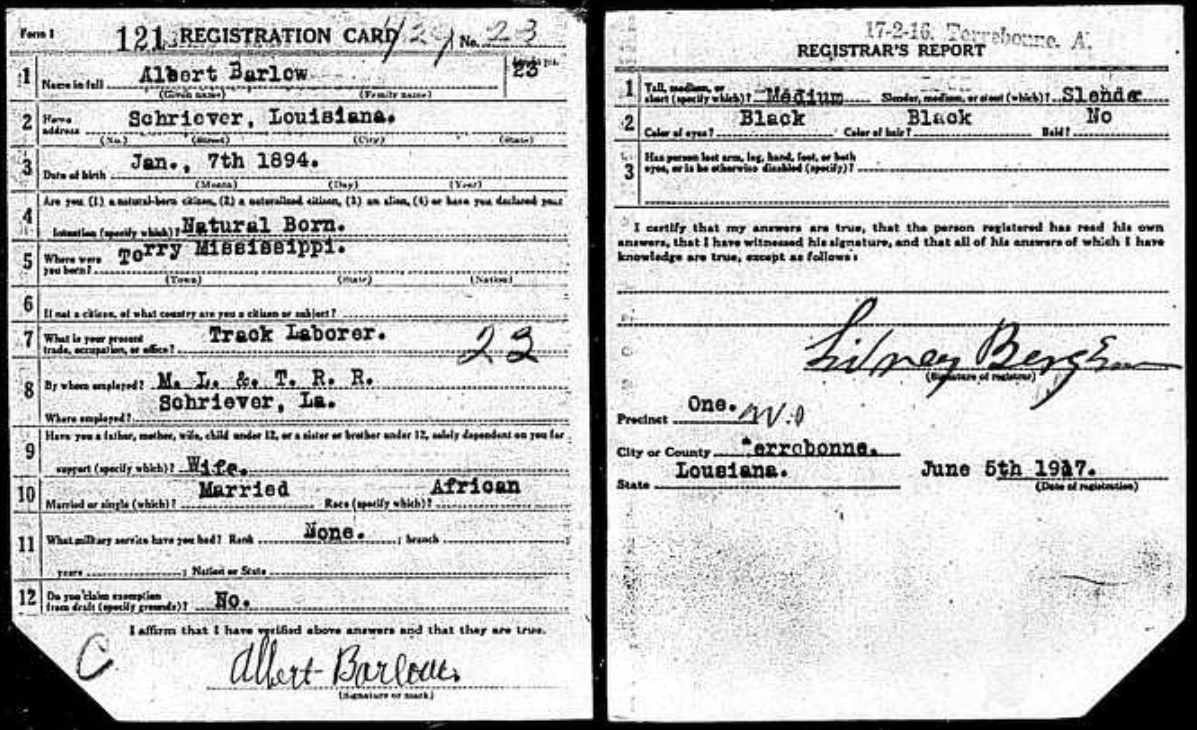 Form 1 121 REGISTRATION CARD No. 23
1 Name in full Albert Barlow 23
(Given name) (Family name)
2 Home address Schriever, Louisiana.
(No.) (Street) (City) (State)
3 Date of birth Jan., 7th 1894.
(Month) (Day) (Year)
4 Are you (1) a natural-born citizen, (2) a naturalized citizen, (3) an alien, (4) or have you declared your
intention (specify which)? Natural Born.
5 Where were you born? Torry Mississippi.
(Town) (State) (Nation)
6 If not a citizen, of what country are you a citizen or subject?
7 What is your present trade, occupation, or office? Track Laborer. 23
8 By whom employed? M. L. &. T. R. R.
Schriever, La.
Where employed?
9 Have you a father, mother, wife, child under 12, or a sister or brother under 12, solely dependent on you for
support (specify which)? Wife.
10 Married or single (which)? Married Race (specify which)? African
11 What military service have you had? Rank None. ; branch ;
years ; Nation or State
12 Do you claim exemption from draft (specify grounds)? No.
I affirm that I have verified above answers and that they are true.
C Albert Barlow
(Signature or mark)
17-2-16. Terrebonne. A.
REGISTRAR'S REPORT
1 Tall, medium, or short (specify which)? Medium Slender, medium, or stout (which)? Slender
2 Color of eyes? Black Color of hair? Black Bald? No
3 Has person lost arm, leg, hand, foot, or both
eyes, or is he otherwise disabled (specify)?
I certify that my answers are true, that the person registered has read his own
answers, that I have witnessed his signature, and that all of his answers of which I have
knowledge are true, except as follows:
Sidney
(Signature of registrar)
Precinct One.
City or County errobonne.
State Lousiana. June 5th 1917.
(Date of registration)